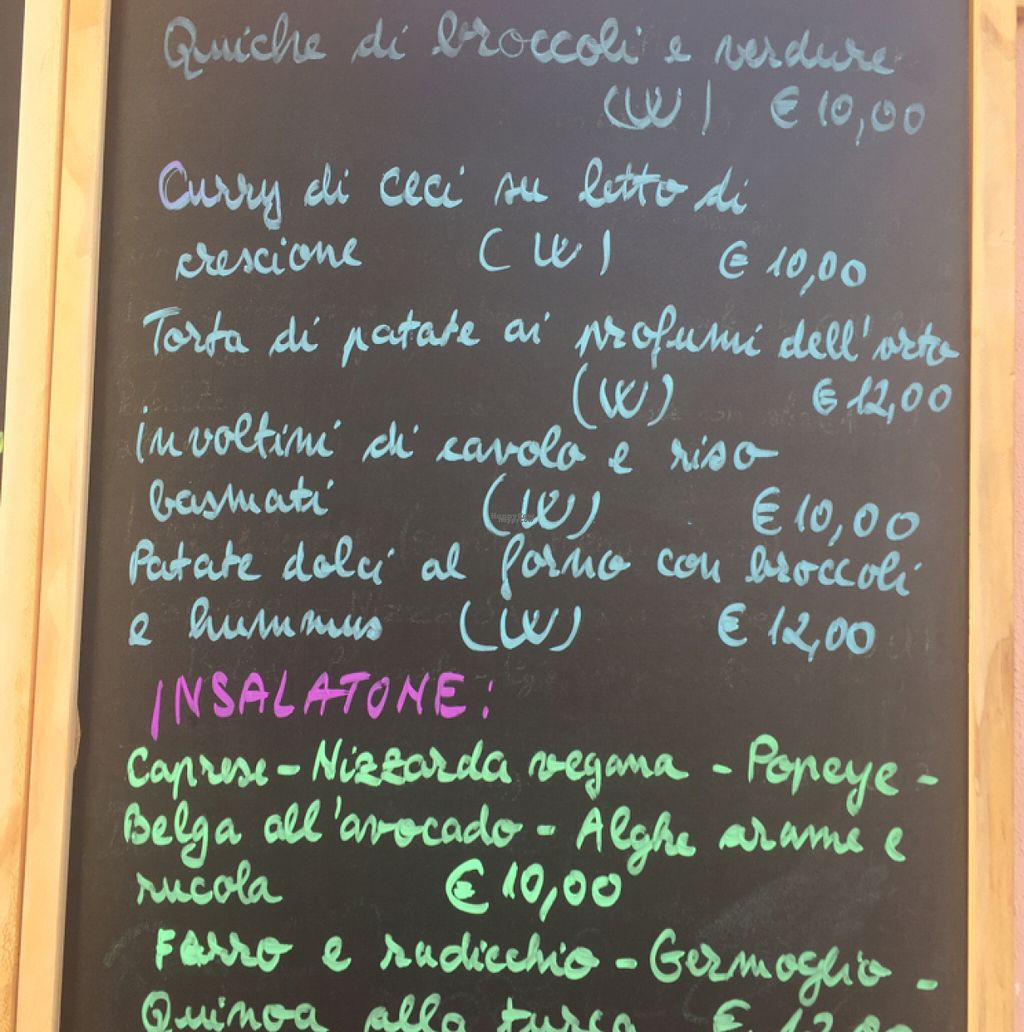 Quiche di broccoli e verdure
(W) € 10,00
Curry di ceci su letto di
crescione (W) € 10,00
Torta di patate ai profumi dell'orto
(W) € 12,00
involtini di cavolo e riso
basmati (W) € 10,00
Patate dolci al forno con broccoli
e hummus (W) € 12,00
INSALATONE:
Caprese - Nizzarda vegana - Popeye -
Belga all'avocado - Alghe arame e
rucola € 10,00
Farro e radicchio - Germoglio -
Quinoa alla turca € 12,00